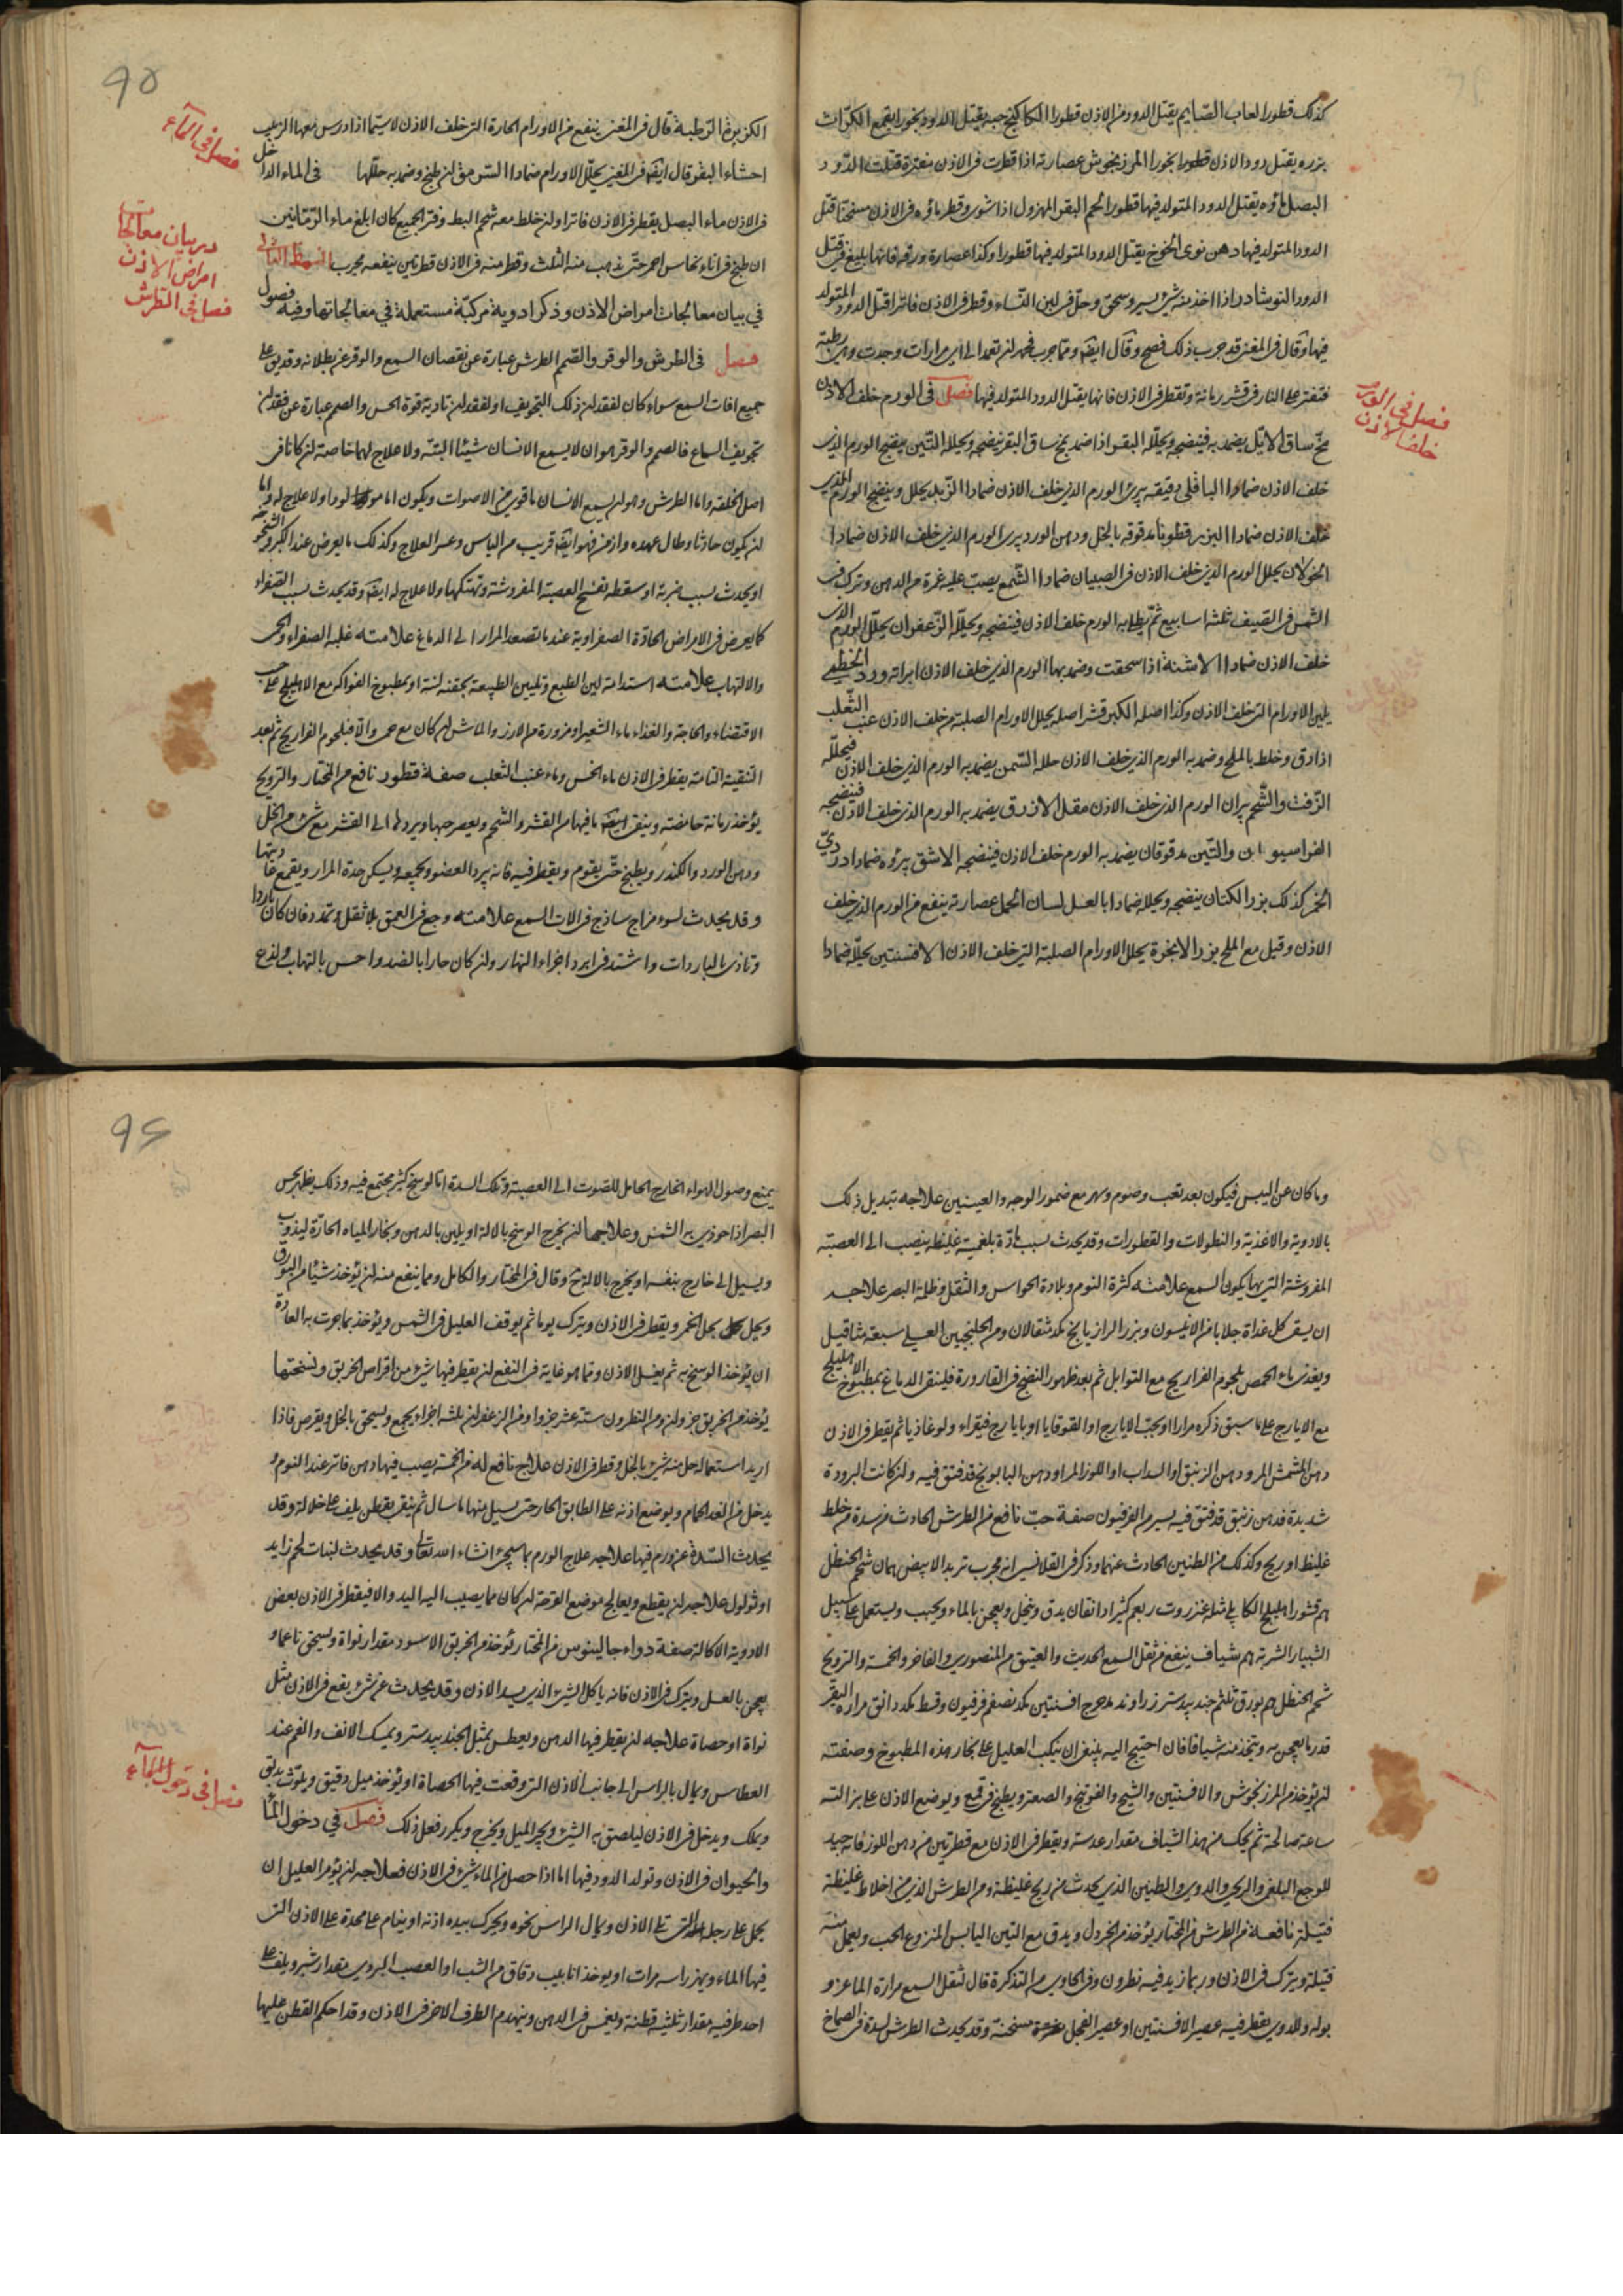 كذلك قطورا لعاب الصّايم يقتل الدود من الاذن قطورا الكاكنج حبه يقتل الدود بخورا بقمع الكرّاث
بزره يقتل دود الاذن قطورا بخورا المرزنجوش عصارته اذا قطرت في الاذن مفترة قتلت الدّود
البصل ماؤه يقتل الدود المتولد فيها قطورا لحم البقر المهزول اذا شوى وقطر ماؤه في الاذن مسخنا قتل
الدود المتولد فيها دهن نوى الخوخ يقتل الدود المتولد فيها قطورا وكذا عصارة ورقه فانها بليغ في قتل
الدود النوشادر اذا اخذ منه شئ يسير وسحق وحلّ في لبن النّساء وقطر في الاذن فاترا قتل الدود المتولد
فيها وقال في المغنى قد جرب ذلك فصح وقال ايضا ومما جرب فهو ان تعمد الى اى مرارات وجدت وهى رطبة
فتفتر على النار في قشر رمانة وتقطر في الاذن فانها يقتل الدود المتولد فيها فصل في الورم خلف الاذن
مخّ ساق الايّل يضمد به فينضجه ويحلّله البقر اذا ضمد بمخ ساق البقر نضجه ويحلله التّين ينضج الورم الذى
خلف الاذن ضمادا الباقلى دقيقه يبرئ الورم الذى خلف الاذن ضمادا الزبل يحلل وينضج الورم الذى
خلف الاذن ضمادا البزر قطونا مدقوقه بالخل ودهن الورد يبرى الورم الذى خلف الاذن ضمادا
الخولان يحلل الورم الذى خلف الاذن في الصبيان ضمادا الشّمع يصبّ عليه غمرة من الدهن وترك في
الشمس في الصيف ثلثة اسابيع ثمّ يطلى به الورم خلف الاذن فينضجه ويحلّله الزّعفران يحلّل الورم الذى
خلف الاذن ضمادا الاشنة اذا سحقت وضمد بها الورم الذى خلف الاذن ابراته ورد الخطمى
يلين الاورام التى خلف الاذن وكذا اصله الكبر قشر اصله يحلل الاورام الصلبة من خلف الاذن عنب الثّعلب
اذا دق وخلط بالملح وضمد به الورم الذى خلف الاذن حلله السّمن يضمد به الورم الذى خلف الاذن فيحلّله
الزّفت والشّحم يبران الورم الذى خلف الاذن مقل الازرق يضمد به الورم الذى خلف الاذن فينضجه
الفراسيون والتّين مدقوقان يضمد به الورم خلف الاذن فينضجه الاشق يبرؤه ضمادا دردىّ
الخمر كذلك بزر الكتان ينضجه ويحلله ضمادا بالعسل لسان الحمل عصارته ينفع من الورم الذى خلف
الاذن وقيل مع الملح بزر الانجرة يحلل الاورام الصلبة التى خلف الاذن الافسنتين يحلّله ضمادا
فصل فى الورم
خلف الاذن
٩٥
الكزبرة الرّطبة قال في المغنى ينفع من الاورام الحارة التى خلف الاذن لاسيّما اذا درس معها الزبيب
احشاء البقر قال ايضا في المغنى يحلّل الاورام ضمادا السّوس متى طبخ وضمد به حلّلها فى الماء الداخل
في الاذن ماء البصل يقطر في الاذن فاترا وان خلط معه شحم البط وفتر الجميع كان ابلغ ماء الرّمّانين
ان طبخ في اناء نحاس احمر حتّى يذهب منه الثلث وقطر منه في الاذن قطرتين ينفعه مجرب
في بيان معالجات امراض الاذن وذكر ادوية مركبّة مستعملة في معالجاتها وفيه فصول
فصل فى الطرش والوقر والصّمم الطرش عبارة عن نقصان السمع والوقر عن بطلانه وقد يق على
جميع افات السمع سواء كان لفقدان ذلك التجويف او لفقدان تادية قوة الحس والصمم عبارة عن فقدان
تجويف السماع فالصمم والوقر هو ان لا يسمع الانسان شيئا البتّة ولا علاج لهما خاصة ان كانا فى
اصل الخلقة واما الطرش وهو ان يسمع الانسان ما قوى من الاصوات ويكون اما مولودا ولا علاج له واما
ان يكون حادثا وطال عهده وازمن فهو ايضا قريب من الياس وعسر العلاج وكذلك ما يعرض عند الكبر والشيخوخة
او يحدث بسبب ضربة او سقطه تفسخ العصبة المفروشة وتهتكها ولا علاج له ايضا وقد يحدث بسبب الصّفراء
كما يعرض في الامراض الحادّة الصفراوية عند ما تصعد المرار الى الدماغ علامته غلبه الصفراء والحر
والالتهاب علاجه استدامة لين الطبع وتليين الطبيعة بحقنة لينة او بمطبوخ الفواكه مع الاهليلج على حسب
الاقتضاء والحاجة والغذاء ماء الشعير او مزورة من الارز والماش ان كان مع حمى والا فبلحوم الفراريج ثم بعد
التنقية التامة يقطر في الاذن ماء الخس وماء عنب الثعلب صفة قطور نافع من المختار والترويح
يؤخذ رمانة حامضة وينقى ما فيها من القشر والشحم ويعصر حبها ويرد ماؤها الى القشر مع شئ من الخل
ودهن الورد والكندر ويطبخ حتّى يقوم ويقطر فيه فانه يبرد العضو ويجمعه ويسكن حدة المرار ويقمع عاديتها
وقد يحدث لسوء مزاج ساذج في الات السمع علامته وجع في العمق بلا ثقل وتمدد فان كان باردا
وتاذى بالباردات واشتد في ابرد اجزاء النهار وان كان حارا بالضد واحس بالتهاب ولذع
فصل فى الماء
در بيان معالجات
امراض الاذن
فصل فى الطرش
وما كان عن اليبس فيكون بعد تعب وصوم وسهر مع ضمور الوجه والعينين علاجه تبديل ذلك
بالادوية والاغذية والنطولات والقطورات وقد يحدث بسبب مادّة بلغمية غليظه ينصب الى العصبة
المفروشة التى بها يكون السمع علامته كثرة النوم وبلادة الحواس والثقل وظلمة البصر علاجه
ان يسقى كل غداة جلابا من الانيسون وبزر الرازيانج مكد مثقالان ومن الجلنجبين العسلى سبعة مثاقيل
ويغذى بماء الحمص بلحوم الفراريج مع التوابل ثم بعد ظهور النضج في القارورة فلينقى الدماغ بمطبوخ الاهليلج
مع الايارج على ما سبق ذكره مرارا او بحبّ الايارج او القوقايا او بايارج فيقراء ولوغاذيا ثم يقطر في الاذن
دهن المشمش المر ودهن الزنبق او السداب او اللوز المر او دهن البابونج قد فتق فيه وان كانت البرودة
شديدة فدهن زنبق قد فتق فيه يسير من الفرفيون صفة حبّ نافع من الطرش الحادث من سدة من خلط
غليظ او ريح وكذلك من الطنين الحادث عنهما وذكر في القلانسى انه مجرب تربد الابيض درهمان شحم الحنظل
درهم قشور اهليلج الكابلى مثله عنزروت ربع درهم كثيرا دانقان يدق وينخل ويعجن بالماء ويحبب ويستعمل على سبيل
الشبيار الشربة درهم شياف ينفع من ثقل السمع الحديث والعتيق من المنصورى والفاخر والخمسة والترويح
شحم الحنظل درهم بورق ثلثى درهم جند بيدستر زراوند مدحرج افسنتين مكد نصف درهم فرفيون وقسط مكد دانق مرارة البقر
قدر ما يعجن به ويتخذ منه شيافا فان احتيج اليه ينبغى ان ينكب العليل على بخار هذه المطبوخ وصفته
ان يؤخذ من المرزنجوش والافسنتين والشيح والفوتنج والصعتر ويطبخ في قمقم ويوضع الاذن على بزالته
ساعة صالحة ثم يحك من هذا الشياف مقدار عدسة ويقطر في الاذن مع قطرتين من دهن اللوز فانه جيد
للوجع البلغمى والريحى والدوى والطنين الذى يحدث من ريح غليظة ومن الطرش الذى من اخلاط غليظة
فتيلة نافعة من الطرش من المختار يؤخذ من الخردل ويدق مع التين اليابس المنزوع الحب ويعمل منه
فتيلة ويترك في الاذن وربما زيد فيه نطرون وفى الحاوى من التذكرة قال لثقل السمع مرارة الماعز و
بوله وللدوى يقطر فيه عصير الافسنتين او عصير الفجل مسخنة وقد يحدث الطرش لسدة في الصماخ
٩٦
يمنع وصول الهواء الخارج الحامل للصوت الى العصبة وتلك السدة اما لوسخ كثير مجتمع فيه وذلك يظهر بحس
البصر اذا حوذى به الشمس وعلاجها ان يخرج الوسخ بالالة او يلين بالدهن وبخار المياه الحارّة ليذوب
ويسيل الى خارج بنفسه او يخرج بالالة وقال في المختار والكامل ومما ينفع منه ان يؤخذ شيئا من البورق
ويحل بخل الخمر ويقطر في الاذن ويترك يوما ثم يوقف العليل فى الشمس ويؤخذ بما جرت به العادة
ان يؤخذ الوسخ به ثم يغسل الاذن ومما هو غاية في النفع ان يقطر فيها شئ من اقراص الخربق ونسختها
يؤخذ من الخربق جزو ان ومن النطرون ستة عشر جزوا ومن الزعفران ثلثة اجزاء يجمع ويسحق بالخل ويقرص فاذا
اريد استعماله حل منه شئ بالخل وقطر في الاذن علاج نافع له من الخمسة يصب فيها دهن فاتر عند النوم و
يدخل من الغد الحمام ويوضع اذنه على الطابق الحار حتى يسيل منها ما سال ثم ينقى بقطن يلف على خلالة وقد
يحدث السّدة عن ورم فيها علاجه علاج الورم بما سيجئ انشاء الله تعالى وقد يحدث لنبات لحم زايد
او ثولول علاجه ان يقطع ويعالج موضع القرحة ان كان مما يصيب اليه اليد والا فيقطر في الاذن بعض
الادوية الاكالة صفة دواء جالينوس من المختار تؤخذ من الخربق الاسود مقدار نواة ويسحق ناعما و
يعجن بالعسل ويترك في الاذن فانه ياكل الشئ الذى يسد الاذن وقد يحدث عن شئ يقع في الاذن مثل
نواة او حصاة علاجه ان يقطر فيها الدهن ويعطس بمثل الجندبيدستر ويمسك الانف والفم عند
العطاس ويمال بالراس الى جانب الاذن التى وقعت فيها الحصاة او يؤخذ ميل دقيق ويلوّث بدبق
ويمك ويدخل في الاذن ليلصق به الشئ ويجر الميل ويخرج ويكرر فعل ذلك فصل في دخول الماء
والحيوان في الاذن وتولد الدود فيها اما اذا حصل من الماء شئ في الاذن فعلاجه ان يؤمر العليل ان
يحجل على رجله التى تلى الاذن ويمال الراس نحوه ويحرك بيده اذنه او ينام على مخدة على الاذن التى
فيها الماء ويهز راسه مرات او يوخذ انابيب دقاق من الشب او العصب البروى مقدار شبر ويلف على
احد طرفيه مقدار ثلثيه قطنة ويغمس في الدهن ويهندم الطرف الاخر في الاذن وقد احكم القطن عليها
فصل فى دخول الماء